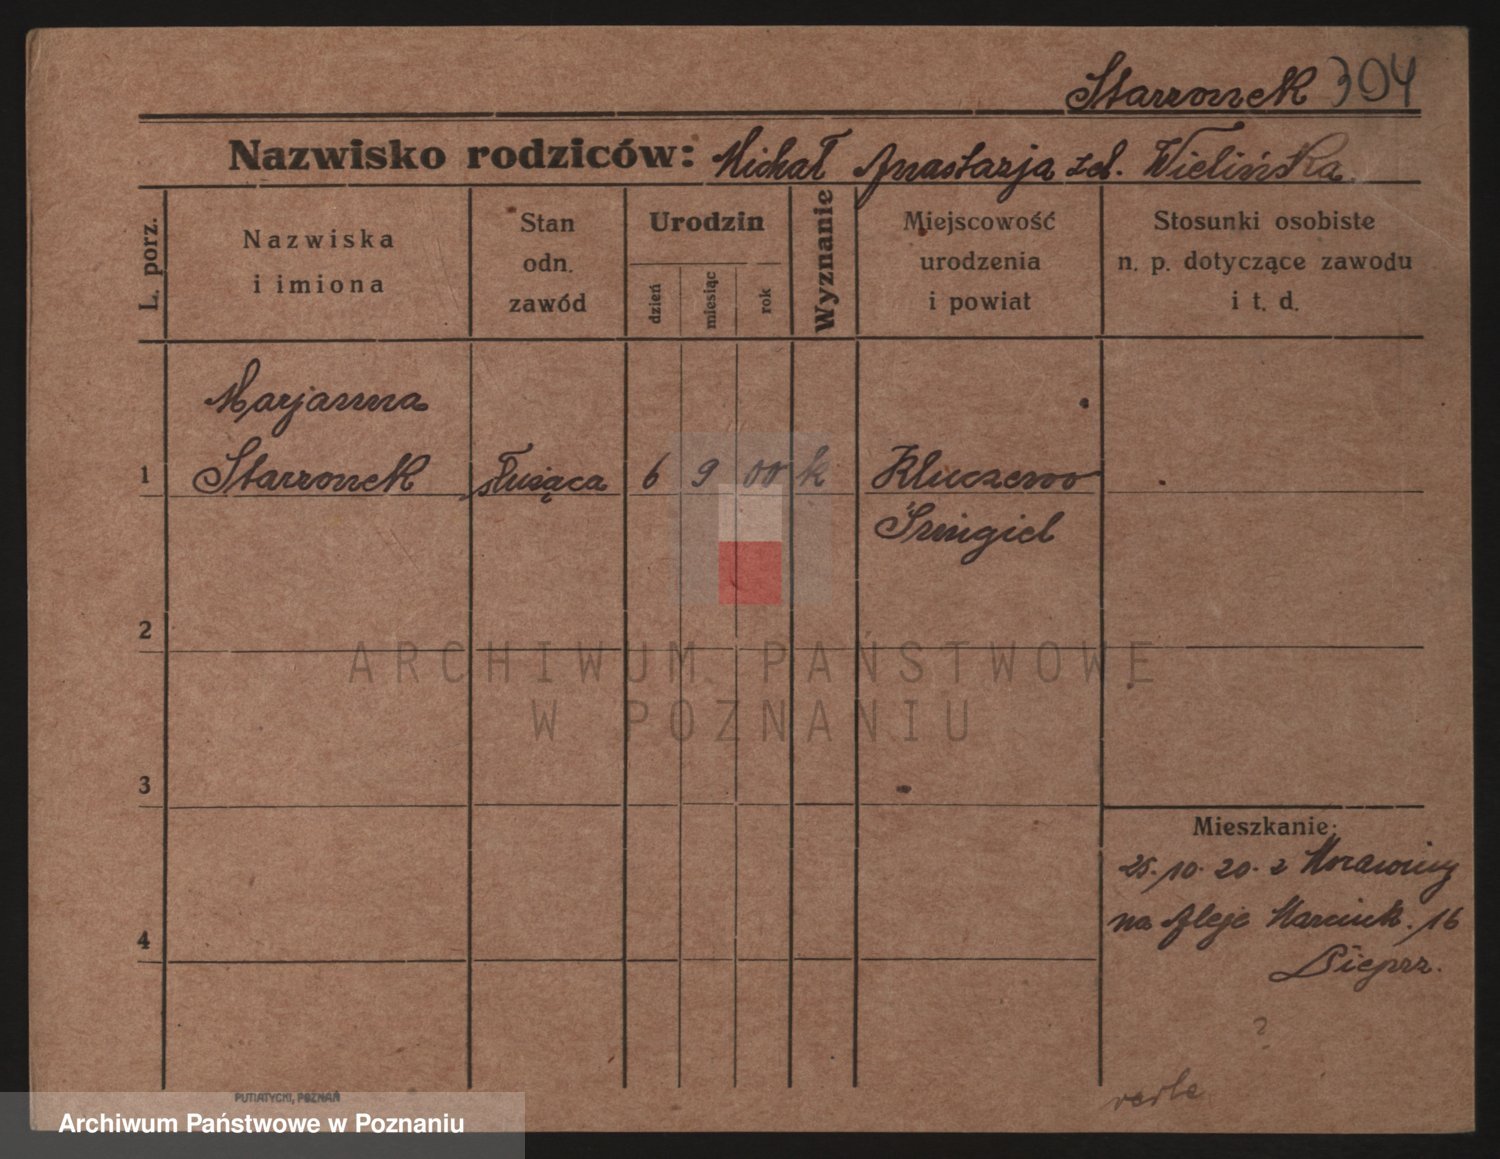 Starzonek 304
Nazwisko rodziców: Michał Anastazja zd. Wielińska
L. porz.
Nazwiska
i imiona
Stan
odn.
zawód
Urodzin
dzień
miesiąc
rok
Wyznanie
Miejscowość
urodzenia
i powiat
Stosunki osobiste
n. p. dotyczące zawodu
i t. d.
Marjanna
1 Starzonek służąca 6 9 00 k Kluczewo
Śmigiel
2
3
4
Mieszkanie:
25.10.20. z
na Aleje Marcink. 16
?
ARCHIWUM PAŃSTWOWE
W POZNANIU
PUTIATYCKI, POZNAŃ
Archiwum Państwowe w Poznaniu